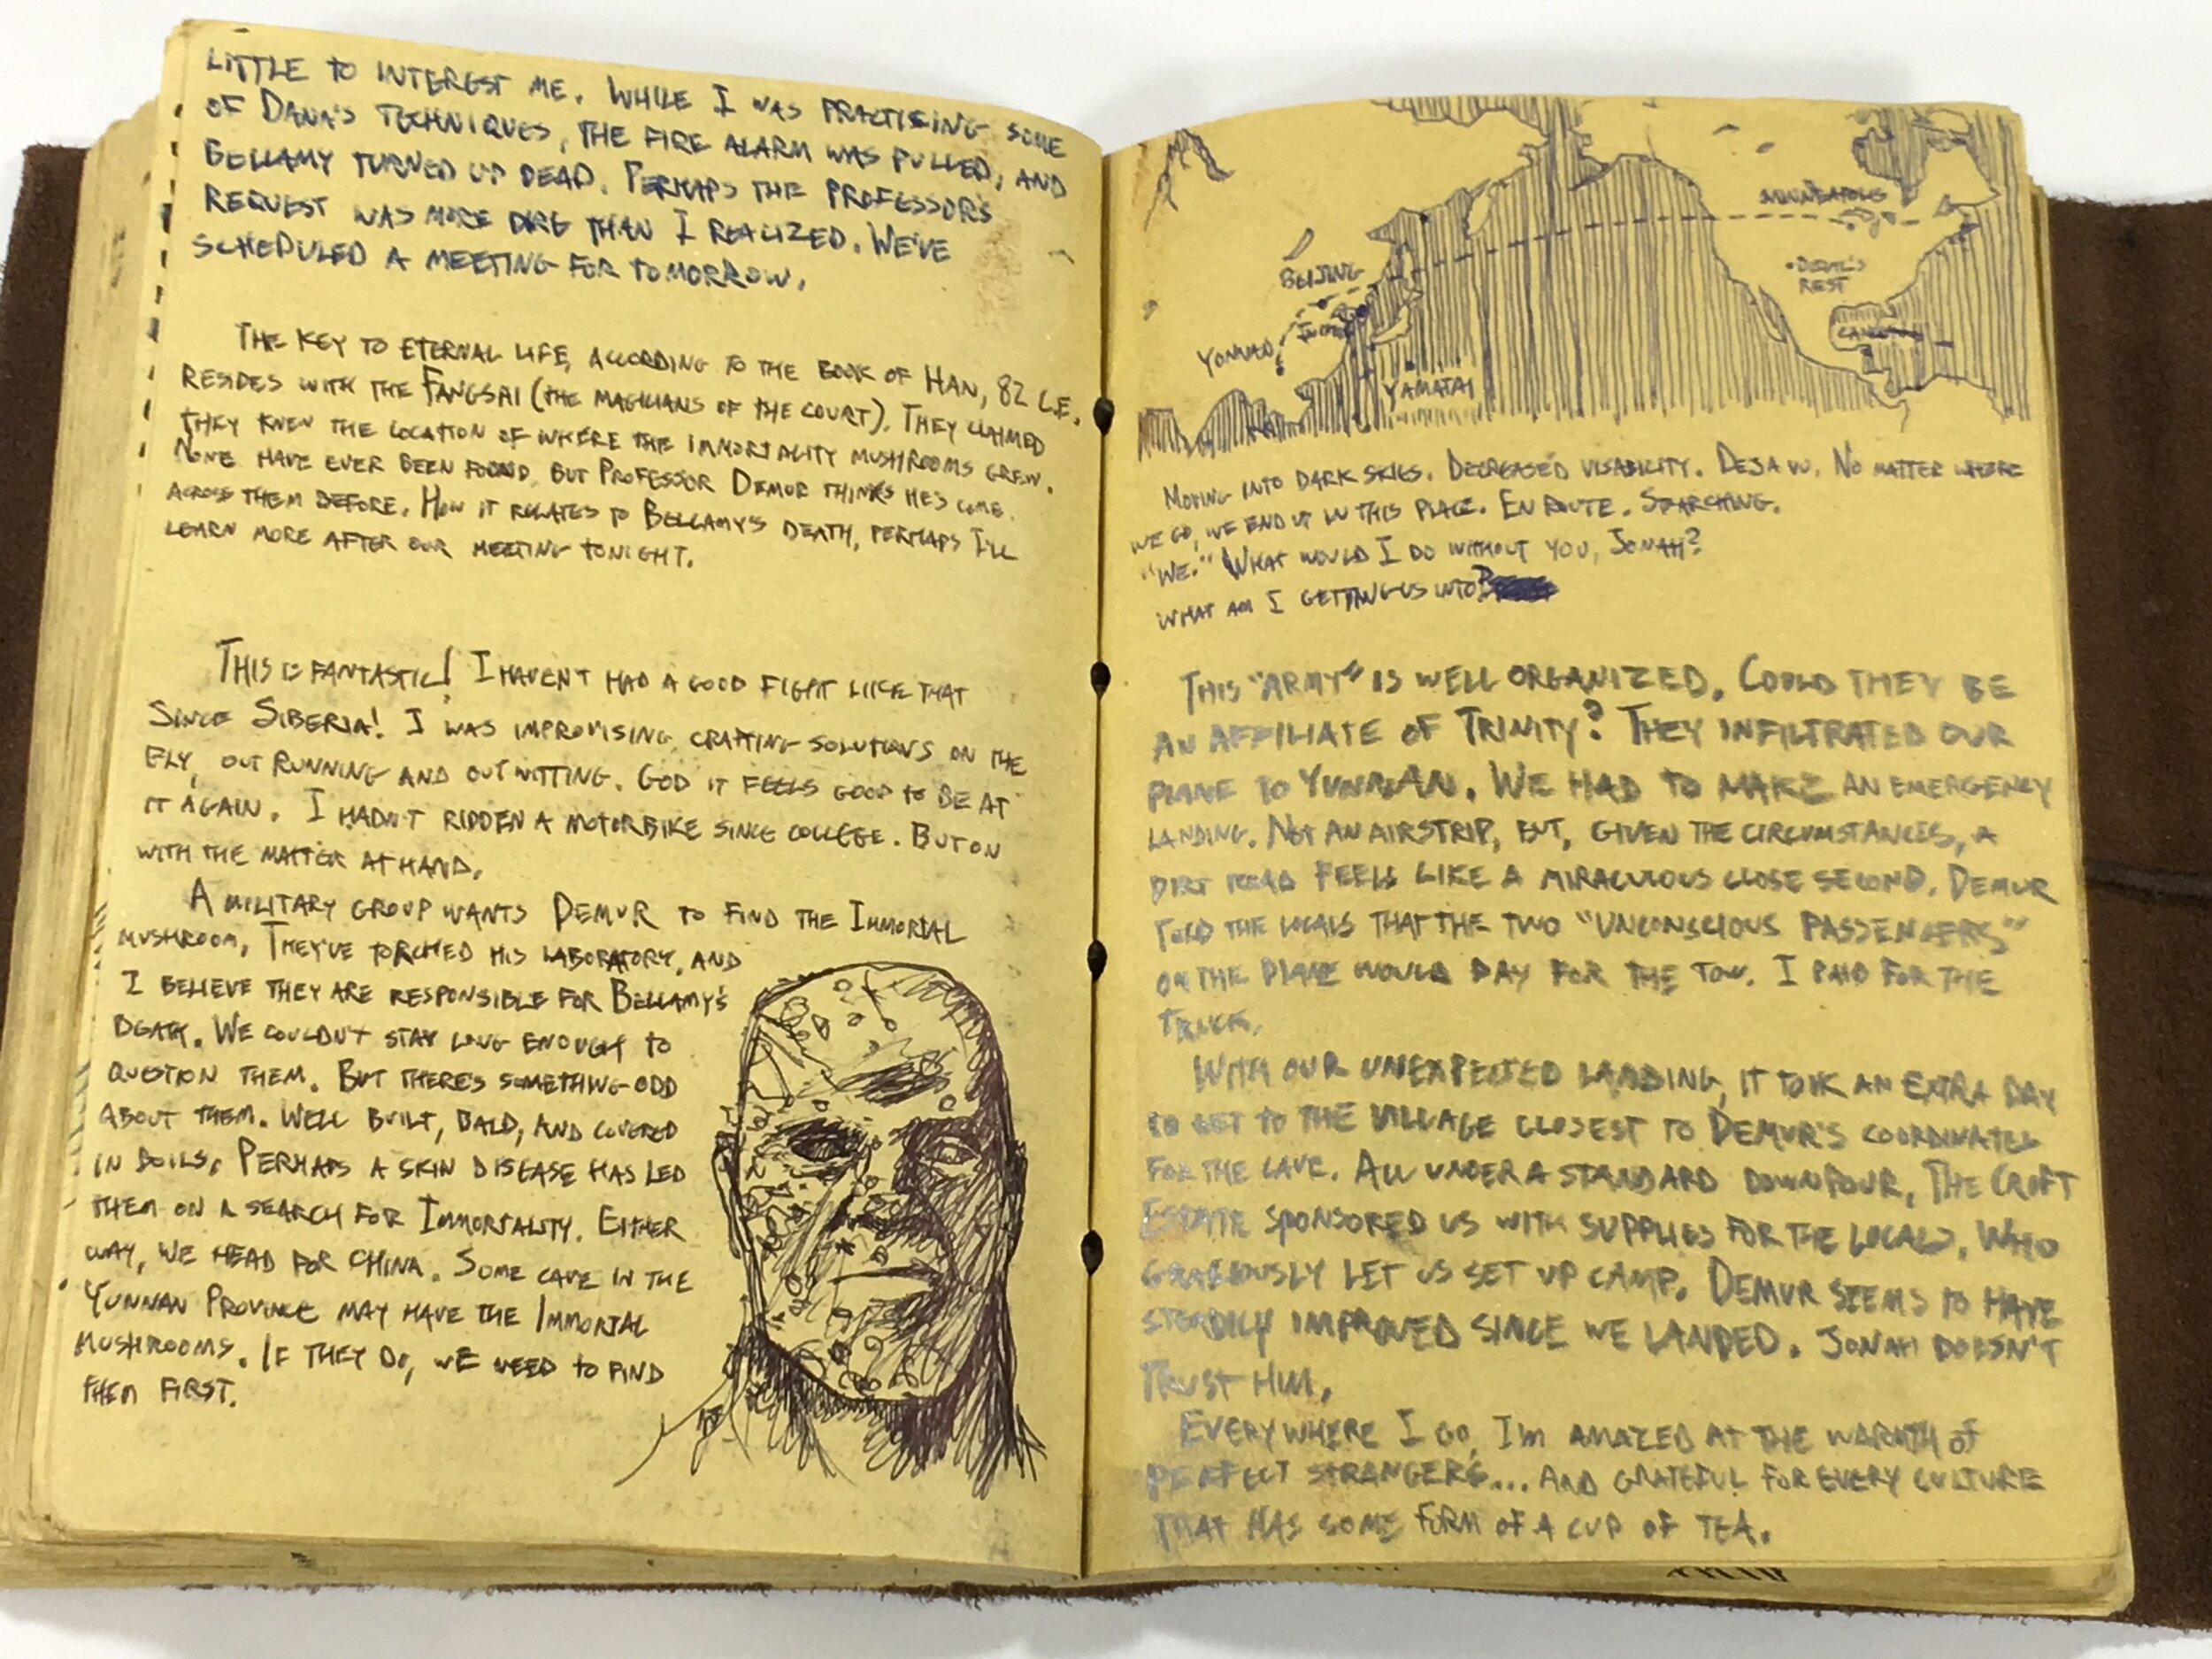 LITTLE TO INTEREST ME. WHILE I WAS PRACTISING SOME
OF DANA'S TECHNIQUES, THE FIRE ALARM WAS PULLED, AND
BELLAMY TURNED UP DEAD. PERHAPS THE PROFESSOR'S
REQUEST WAS MORE DIRE THAN I REALIZED. WE'VE
SCHEDULED A MEETING FOR TOMORROW.
THE KEY TO ETERNAL LIFE, ACCORDING TO THE BOOK OF HAN, 82 C.E.
RESIDES WITH THE FANGSHI (THE MAGICIANS OF THE COURT). THEY CLAIMED
THEY KNEW THE LOCATION OF WHERE THE IMMORTALITY MUSHROOMS GREW.
NONE HAVE EVER BEEN FOUND, BUT PROFESSOR DEMUR THINKS HE'S COME
ACROSS THEM BEFORE. HOW IT RELATES TO BELLAMY'S DEATH, PERHAPS I'LL
LEARN MORE AFTER OUR MEETING TONIGHT.
THIS IS FANTASTIC! I HAVEN'T HAD A GOOD FIGHT LIKE THAT
SINCE SIBERIA! I WAS IMPROVISING, CRAFTING SOLUTIONS ON THE
FLY, OUT RUNNING AND OUTWITTING. GOD IT FEELS GOOD TO BE AT
IT AGAIN. I HADN'T RIDDEN A MOTORBIKE SINCE COLLEGE. BUT ON
WITH THE MATTER AT HAND.
A MILITARY GROUP WANTS DEMUR TO FIND THE IMMORTAL
MUSHROOM. THEY'VE TORCHED HIS LABORATORY, AND
I BELIEVE THEY ARE RESPONSIBLE FOR BELLAMY'S
DEATH. WE COULDN'T STAY LONG ENOUGH TO
QUESTION THEM. BUT THERE'S SOMETHING ODD
ABOUT THEM. WELL BUILT, BALD, AND COVERED
IN BOILS. PERHAPS A SKIN DISEASE HAS LED
THEM ON A SEARCH FOR IMMORTALITY. EITHER
WAY, WE HEAD FOR CHINA. SOME CAVE IN THE
YUNNAN PROVINCE MAY HAVE THE IMMORTAL
MUSHROOMS. IF THEY DO, WE NEED TO FIND
THEM FIRST.
MINNEAPOLIS
BEIJING
DEVIL'S
REST
YUNNAN
YAMATAI
MOVING INTO DARK SKIES. DECREASED VISABILITY. DEJA VU. NO MATTER WHERE
WE GO, WE END UP IN THIS PLACE. EN ROUTE. SEARCHING.
"WE." WHAT WOULD I DO WITHOUT YOU, JONAH?
WHAT AM I GETTING US INTO?
THIS "ARMY" IS WELL ORGANIZED. COULD THEY BE
AN AFFILIATE OF TRINITY? THEY INFILTRATED OUR
PLANE TO YUNNAN. WE HAD TO MAKE AN EMERGENCY
LANDING. NOT AN AIRSTRIP, BUT, GIVEN THE CIRCUMSTANCES, A
DIRT ROAD FEELS LIKE A MIRACULOUS CLOSE SECOND. DEMUR
TOLD THE LOCALS THAT THE TWO "UNCONSCIOUS PASSENGERS"
ON THE PLANE WOULD PAY FOR THE TOW. I PAID FOR THE
TRUCK.
WITH OUR UNEXPECTED LANDING, IT TOOK AN EXTRA DAY
TO GET TO THE VILLAGE CLOSEST TO DEMUR'S COORDINATES
FOR THE CAVE. ALL UNDER A STANDARD DOWNPOUR. THE CROFT
ESTATE SPONSORED US WITH SUPPLIES FOR THE LOCALS, WHO
GRACIOUSLY LET US SET UP CAMP. DEMUR SEEMS TO HAVE
STEADILY IMPROVED SINCE WE LANDED. JONAH DOESN'T
TRUST HIM.
EVERYWHERE I GO, I'M AMAZED AT THE WARMTH OF
PERFECT STRANGERS... AND GRATEFUL FOR EVERY CULTURE
THAT HAS SOME FORM OF A CUP OF TEA.